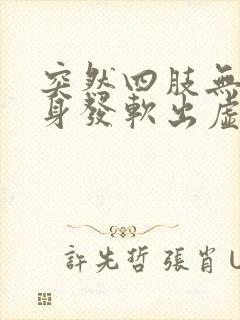 突然四肢無
身發軟出虛
許先哲 張肖 U